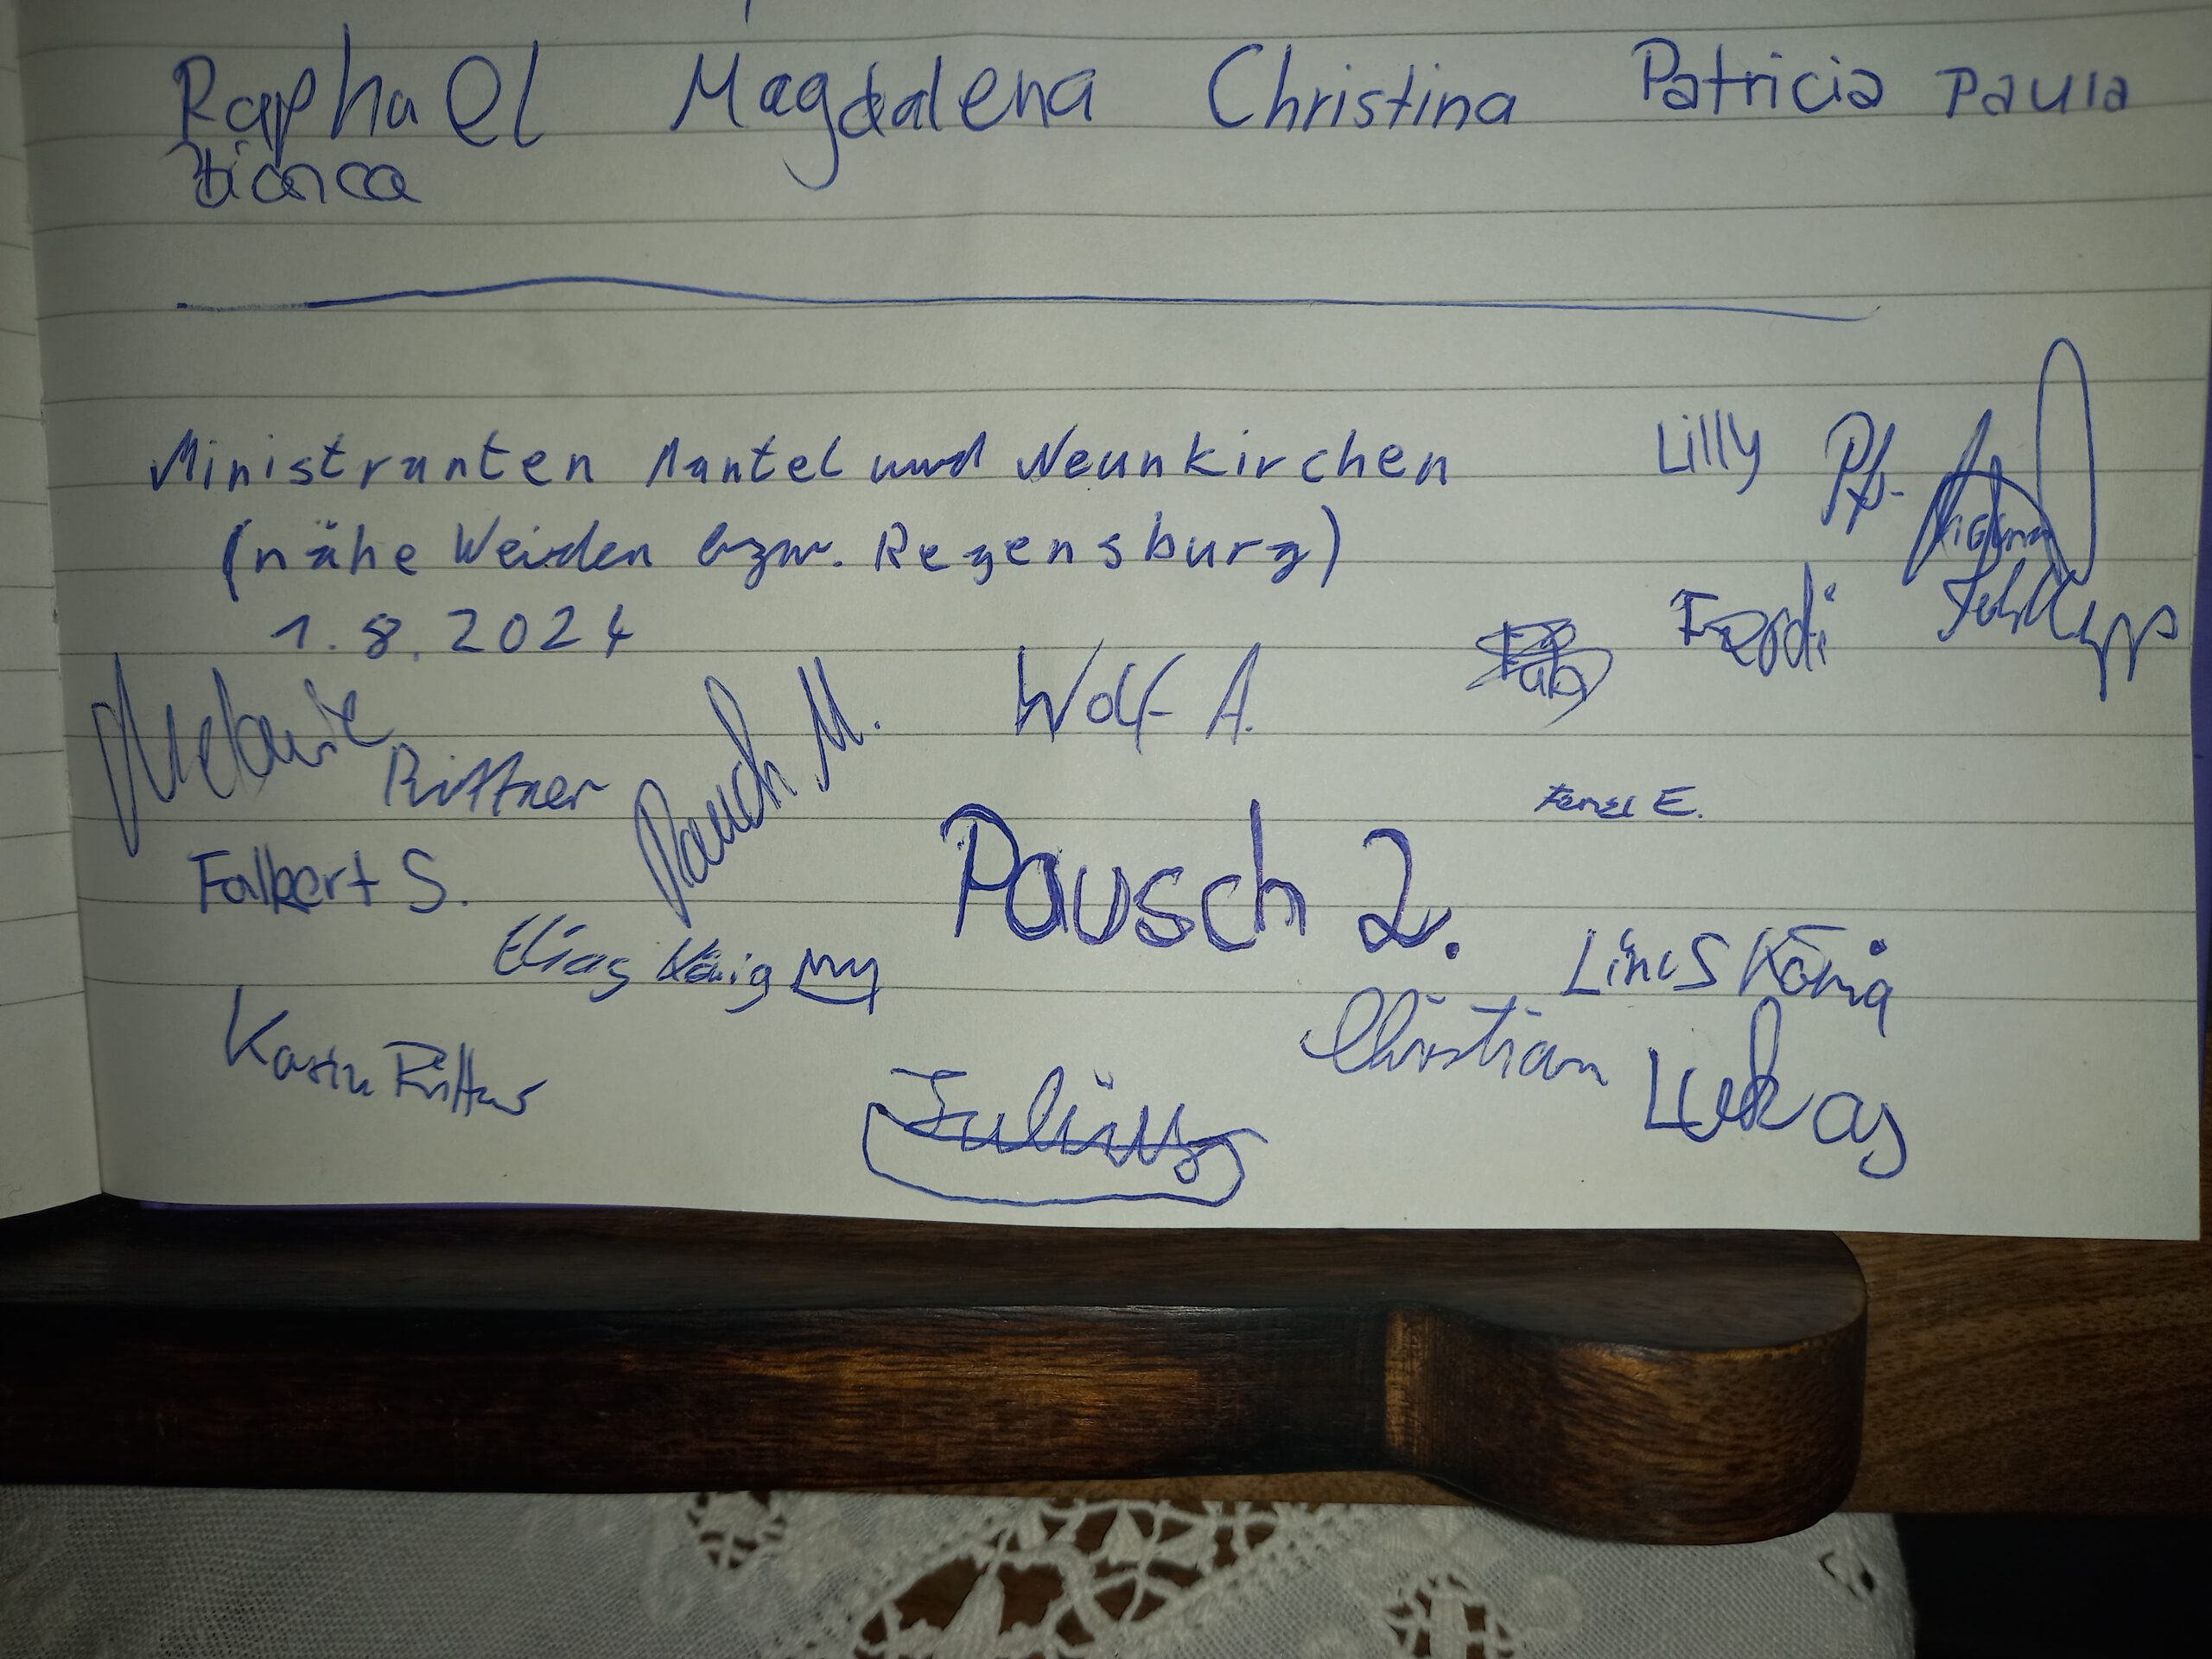 Raphael Magdalena Christina Patricia Paula
Bianca
Ministranten Mantel und Neunkirchen
(nähe Weiden bzw. Regensburg)
1.8.2024
Lilly
Pf.
Ferdi
Melanie
Rittner
Wolf A.
Falkert S.
Pausch 2.
Elias König
Linus König
Karin Rittner
Christian
Lukas
Julius